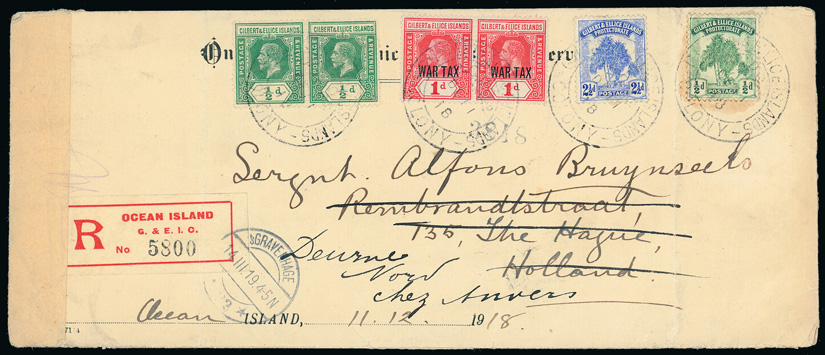 GILBERT & ELLICE ISLANDS
POSTAGE & REVENUE
½d
GILBERT & ELLICE ISLANDS
POSTAGE & REVENUE
½d
GILBERT & ELLICE ISLANDS
POSTAGE & REVENUE
WAR TAX
1d
GILBERT & ELLICE ISLANDS
POSTAGE & REVENUE
WAR TAX
1d
GILBERT & ELLICE ISLANDS
PROTECTORATE
2½d POSTAGE 2½d
GILBERT & ELLICE ISLANDS
PROTECTORATE
½d POSTAGE ½d
On
Sergnt. Alfons Bruynseels
Rembrandtstraat,
135, The Hague,
Holland.
Deurne
Nord
chez Anvers
R
OCEAN ISLAND
G. & E. I. C.
No 5800
'SGRAVENHAGE
14 III 19.4-5N
Ocean ISLAND, 11.12. 1918.